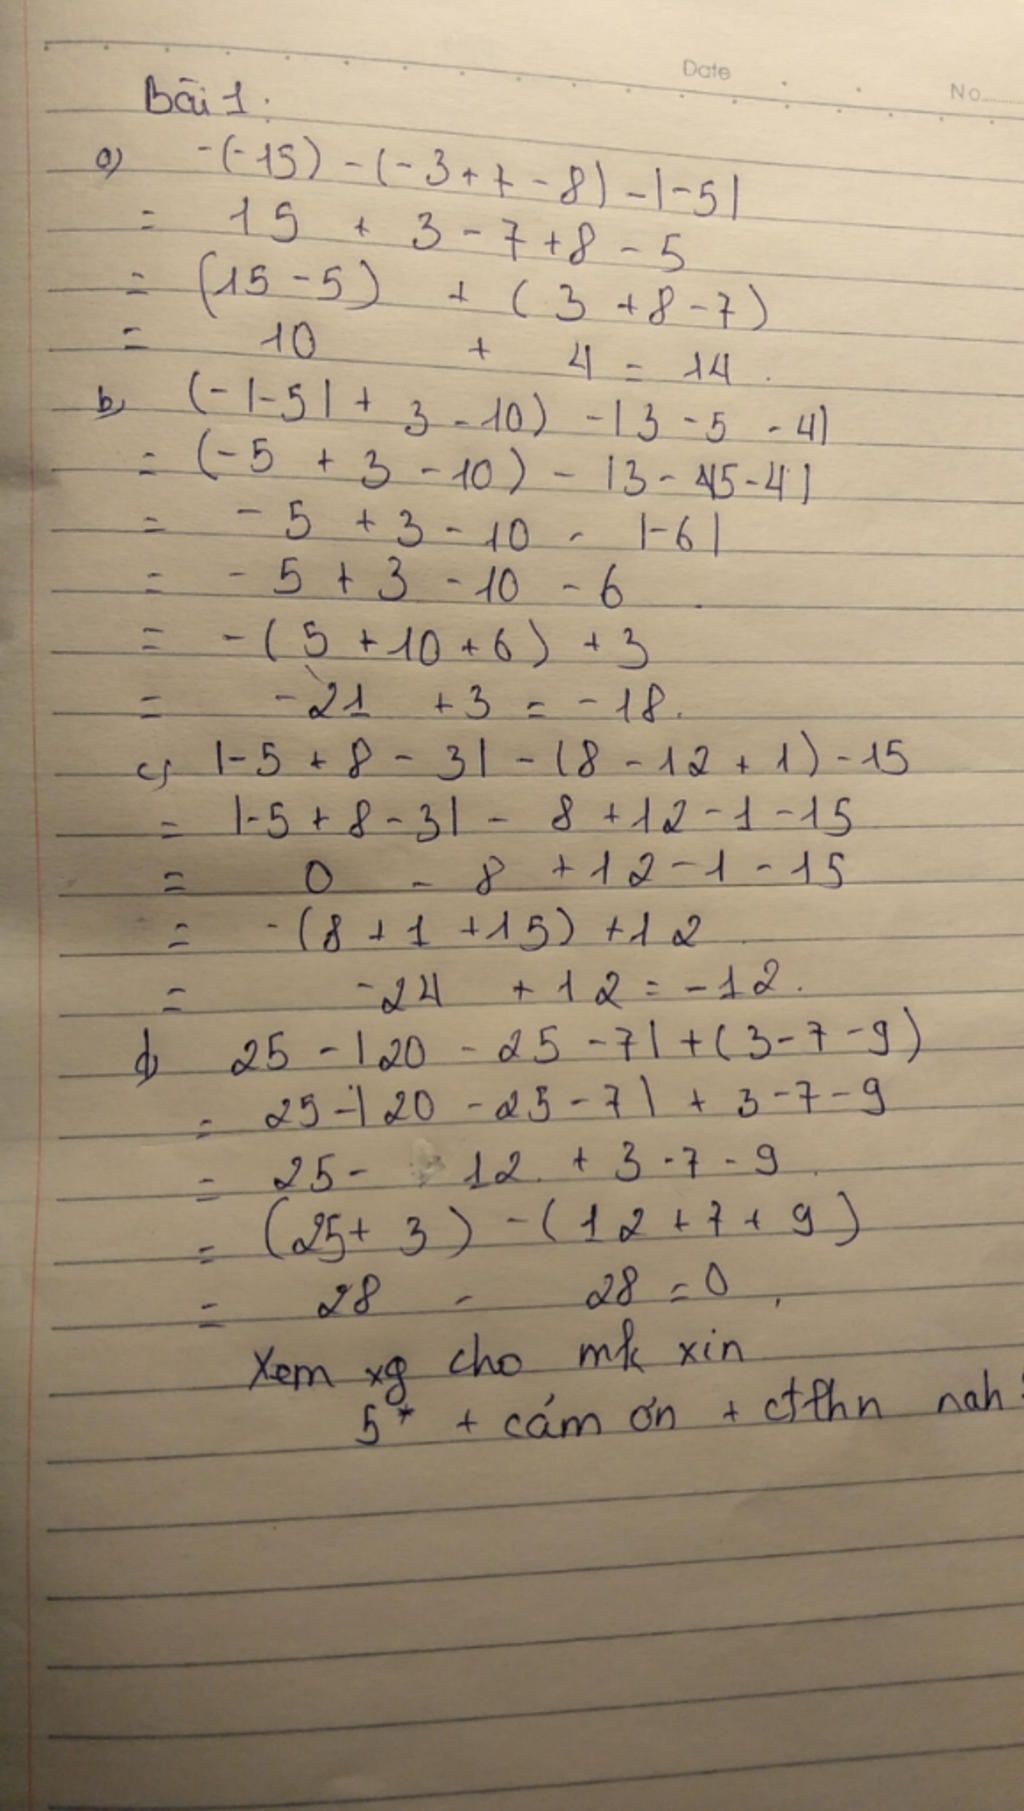 Date
No
Bài 1:
a) -(-15) - (-3 + 7 - 8) - |-5|
= 15 + 3 - 7 + 8 - 5
= (15 - 5) + (3 + 8 - 7)
= 10 + 4 = 14.
b) (-|-5| + 3 - 10) - |3 - 5 - 4|
= (-5 + 3 - 10) - |3 - 5 - 4|
= - 5 + 3 - 10 - |-6|
= - 5 + 3 - 10 - 6
= -(5 + 10 + 6) + 3
= -21 + 3 = -18.
c) |-5 + 8 - 3| - (8 - 12 + 1) - 15
= |-5 + 8 - 3| - 8 + 12 - 1 - 15
= 0 - 8 + 12 - 1 - 15
= -(8 + 1 + 15) + 12
= -24 + 12 = -12.
d) 25 - |20 - 25 - 7| + (3 - 7 - 9)
= 25 - |20 - 25 - 7| + 3 - 7 - 9
= 25 - 12 + 3 - 7 - 9
= (25 + 3) - (12 + 7 + 9)
= 28 - 28 = 0.
Xem xg cho mk xin
5* + cám ơn + ctlhn nah